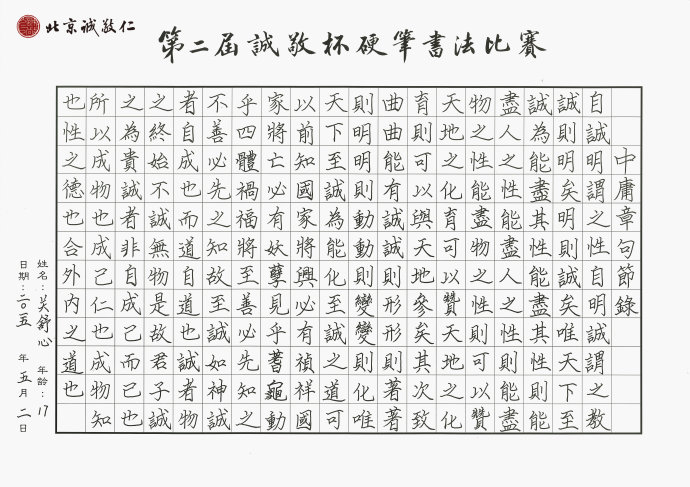 北京誠敬仁
第二届誠敬杯硬筆書法比賽
中庸章句節錄
自誠明謂之性自明誠謂之教
誠則明矣明則誠矣唯天下至
誠為能盡其性能盡其性則能
盡人之性能盡人之性則能盡
物之性能盡物之性則可以贊
天地之化育可以贊天地之化
育則可以與天地參矣其次致
曲曲能有誠誠則形形則著著
則明明則動動則變變則化唯
天下至誠為能化至誠之道可
以前知國家將興必有禎祥國
家將亡必有妖孽見乎蓍龜動
乎四體禍福將至善必先知之
不善必先之知故至誠如神誠
者自成也而道自道也誠者物
之終始不誠無物是故君子誠
之為貴誠者非自成己而已也
所以成物也成己仁也成物知
也性之德也合外内之道也
姓名：吴舒心 年齡：17
日期：二〇五 年 五 月 二 日